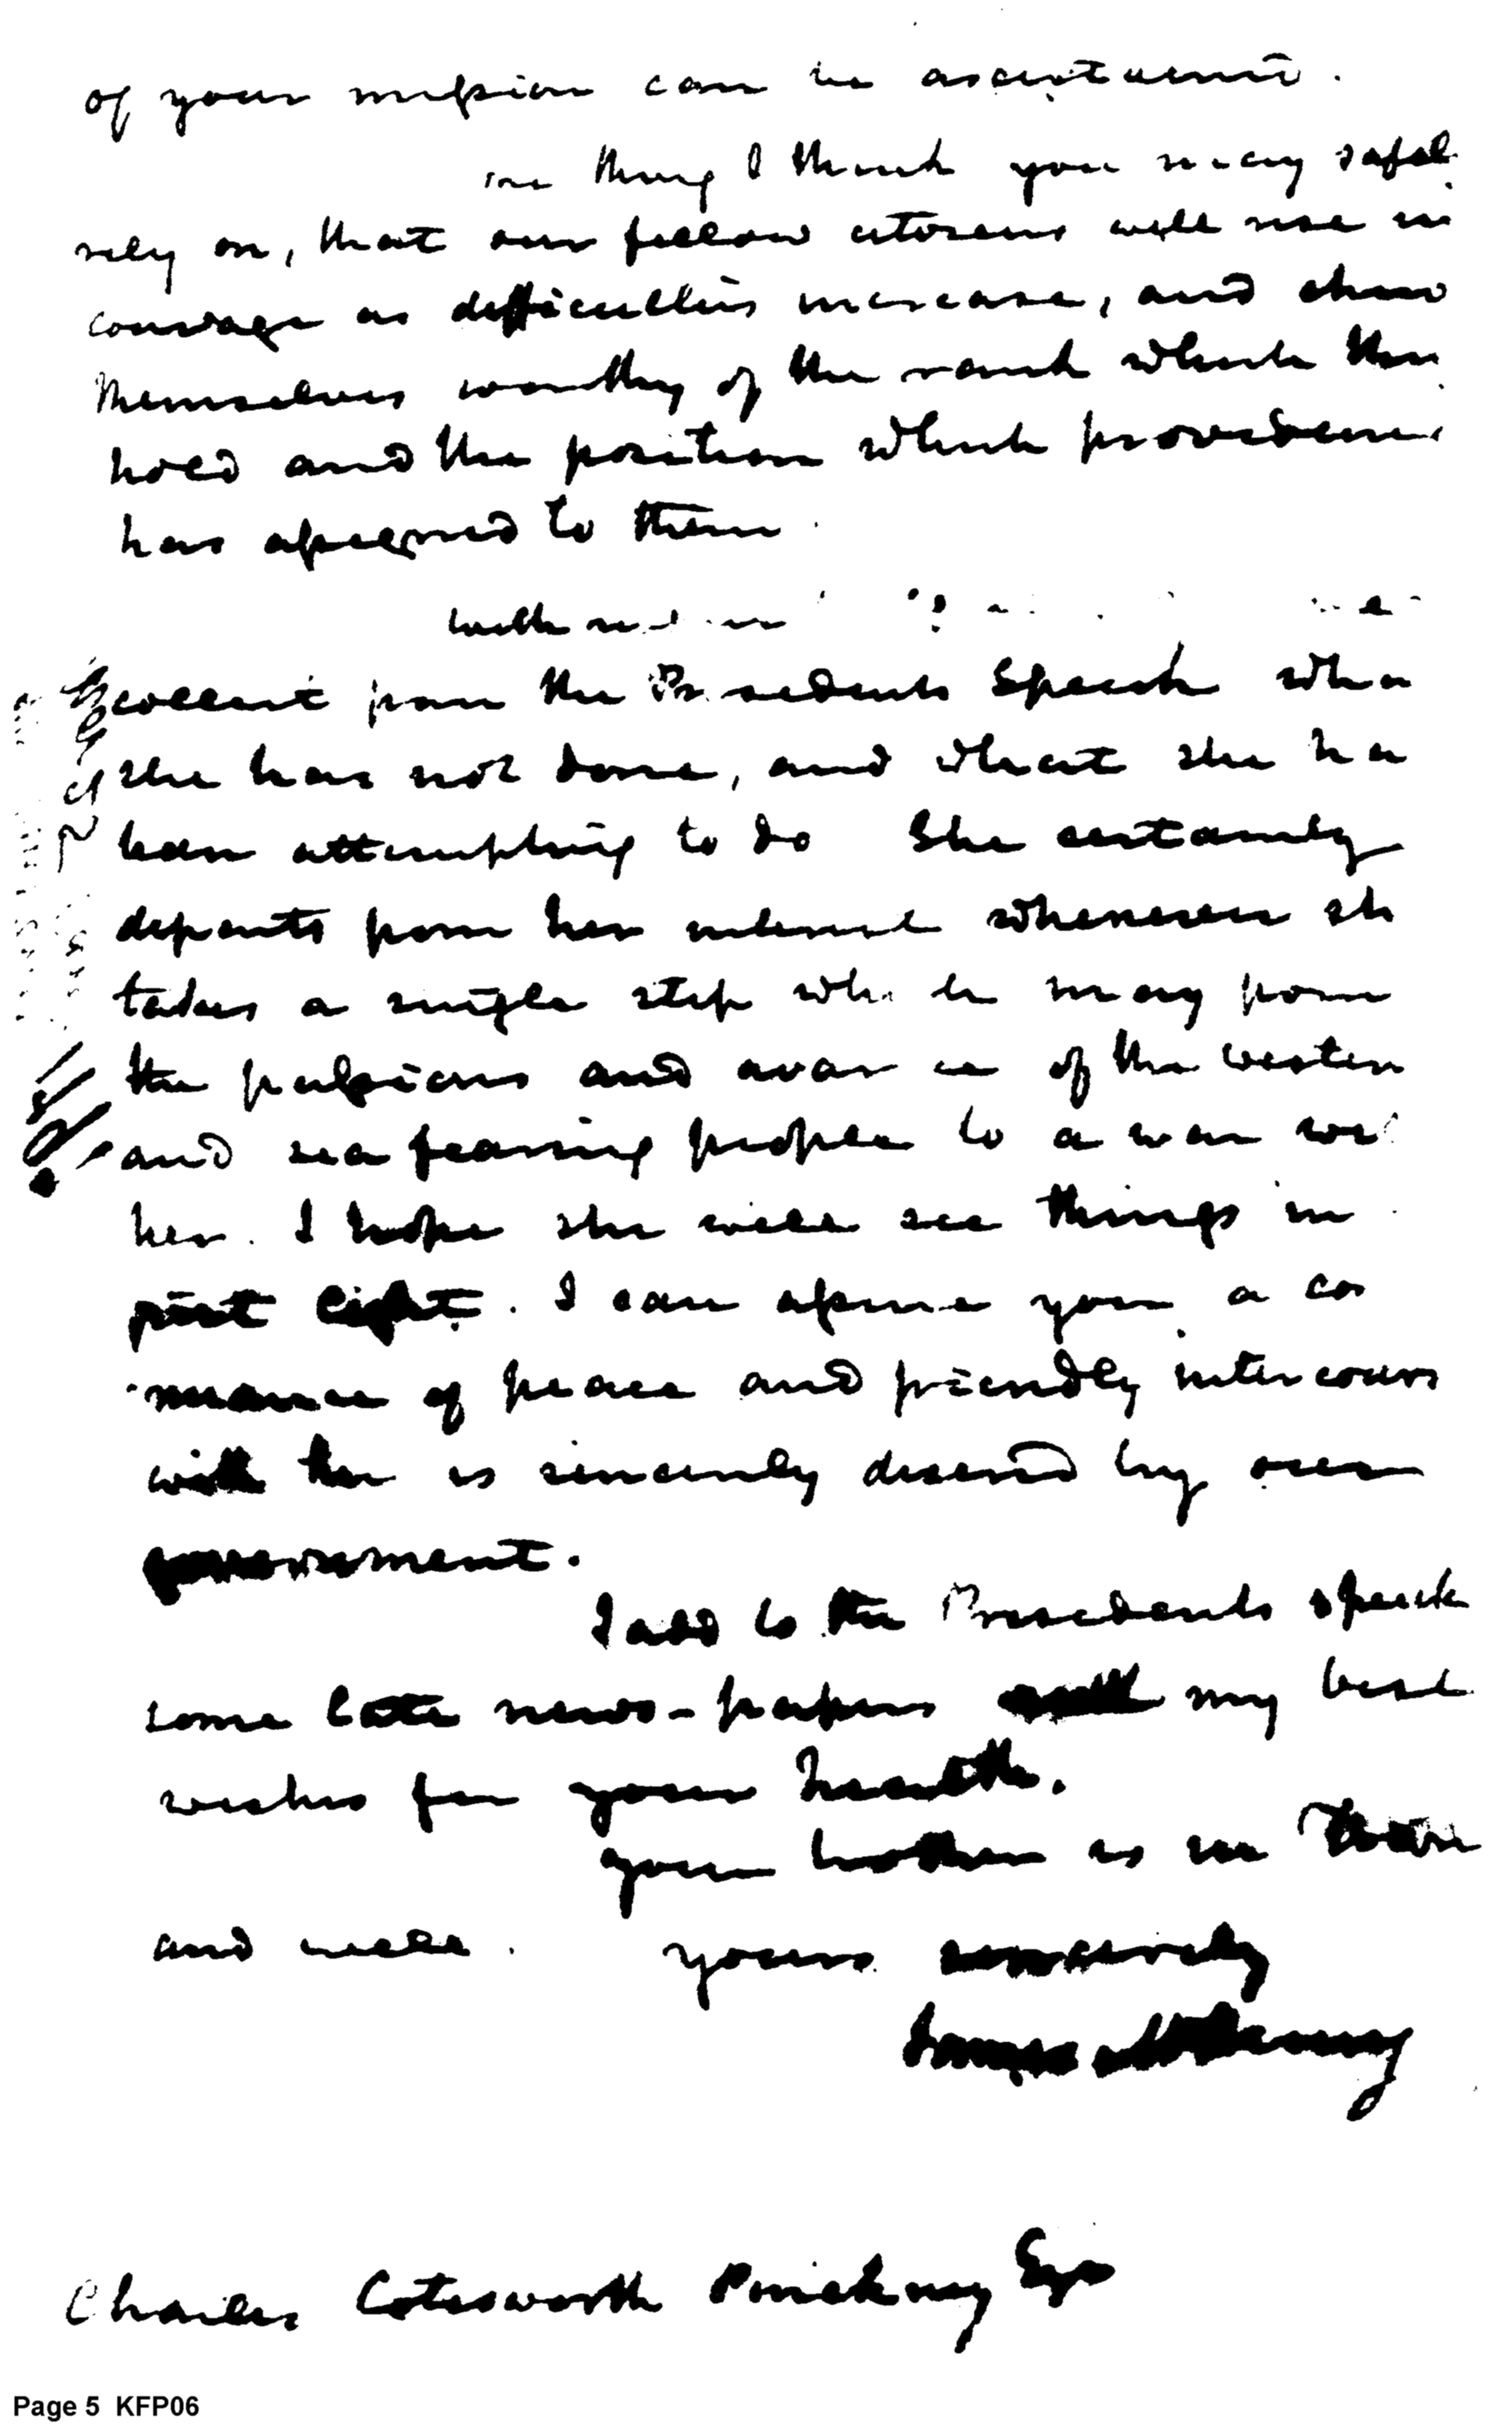 of your mission can be ascertained.
one thing I think you may safel
rely on, that our fellow citizens will rise in
courage as difficulties increase, and shew
themselves worthy of the rank which the
hold and the position which providence
has assigned to them.
with
collect from the Presidents Speech wha
she has not done, and what she ha
been attempting to do She certainly
departs from her interest whenever sh
takes a single step which may rom
the passions and avarice of the western
and sea fearing people to a war wi
her. I hope she will see things in
just light. I can assure you a con
nuance of peace and friendly intercours
with her is sincerely desired by our
government.
I add to the Presidents speech
some late news-papers with my best
wishes for your health.
your brother is in Town
and well. yours sincerely
James McHenry
Charles Cotesworth Pinckney Esqr
Page 5 KFP06